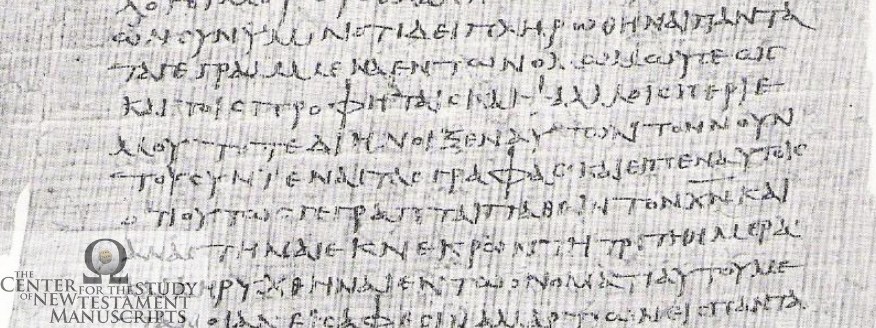 ΩΝϹΥΝΥΜΙΝΟΤΙΔΕΙΠΛΗΡΩΘΗΝΑΙΠΑΝΤΑ
ΤΑΓΕΓΡΑΜΜΕΝΑΕΝΤΩΝΟΜΩΜΩΥϹΕΩϹ
ΚΑΙΤΟΙϹΠΡΟΦΗΤΑΙϹΚΑΙΨΑΛΜΟΙϹΠΕΡΙΕ
ΜΟΥΤΟΤΕΔΙΗΝΟΙΞΕΝΑΥΤΩΝΤΟΝΝΟΥΝ
ΤΟΥϹΥΝΙΕΝΑΙΤΑϹΓΡΑΦΑϹΚΑΙΕΙΠΕΝΑΥΤΟΙϹ
ΟΤΙΟΥΤΩϹΓΕΓΡΑΠΤΑΙΠΑΘΕΙΝΤΟΝΧ̅Ν̅ΚΑΙ
ΑΝΑϹΤΗΝΑΙΕΚΝΕΚΡΩΝΤΗΤΡΙΤΗΗΜΕΡΑ
ΗΡΥΧΘΗΝΑΙΕΝΤΩΟΝΟΜΑΤΙΑΥΤΟΥΜΕ
ΝΟΙΑΝΕΙϹΑΦΕϹΙΝΑΜΑΡΤΙΩΝΕΙϹΠΑΝΤΑ
Ω
THE CENTER FOR THE STUDY
OF NEW TESTAMENT
MANUSCRIPTS